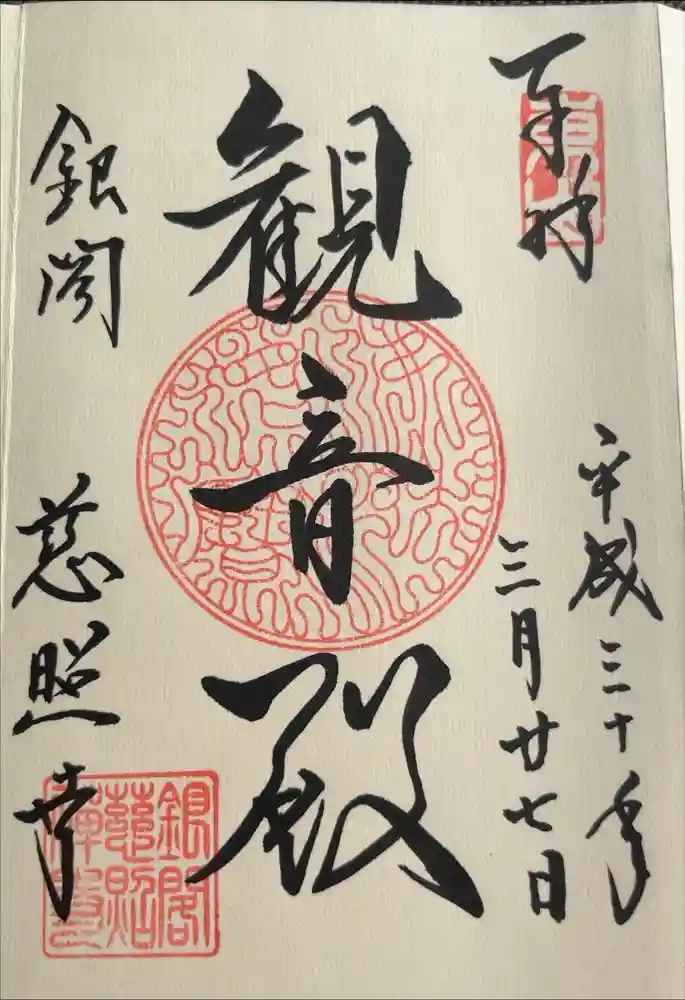 奉拝
平成三十年
三月廿七日
観音殿
銀閣
慈照寺
銀閣
慈照
禅寺